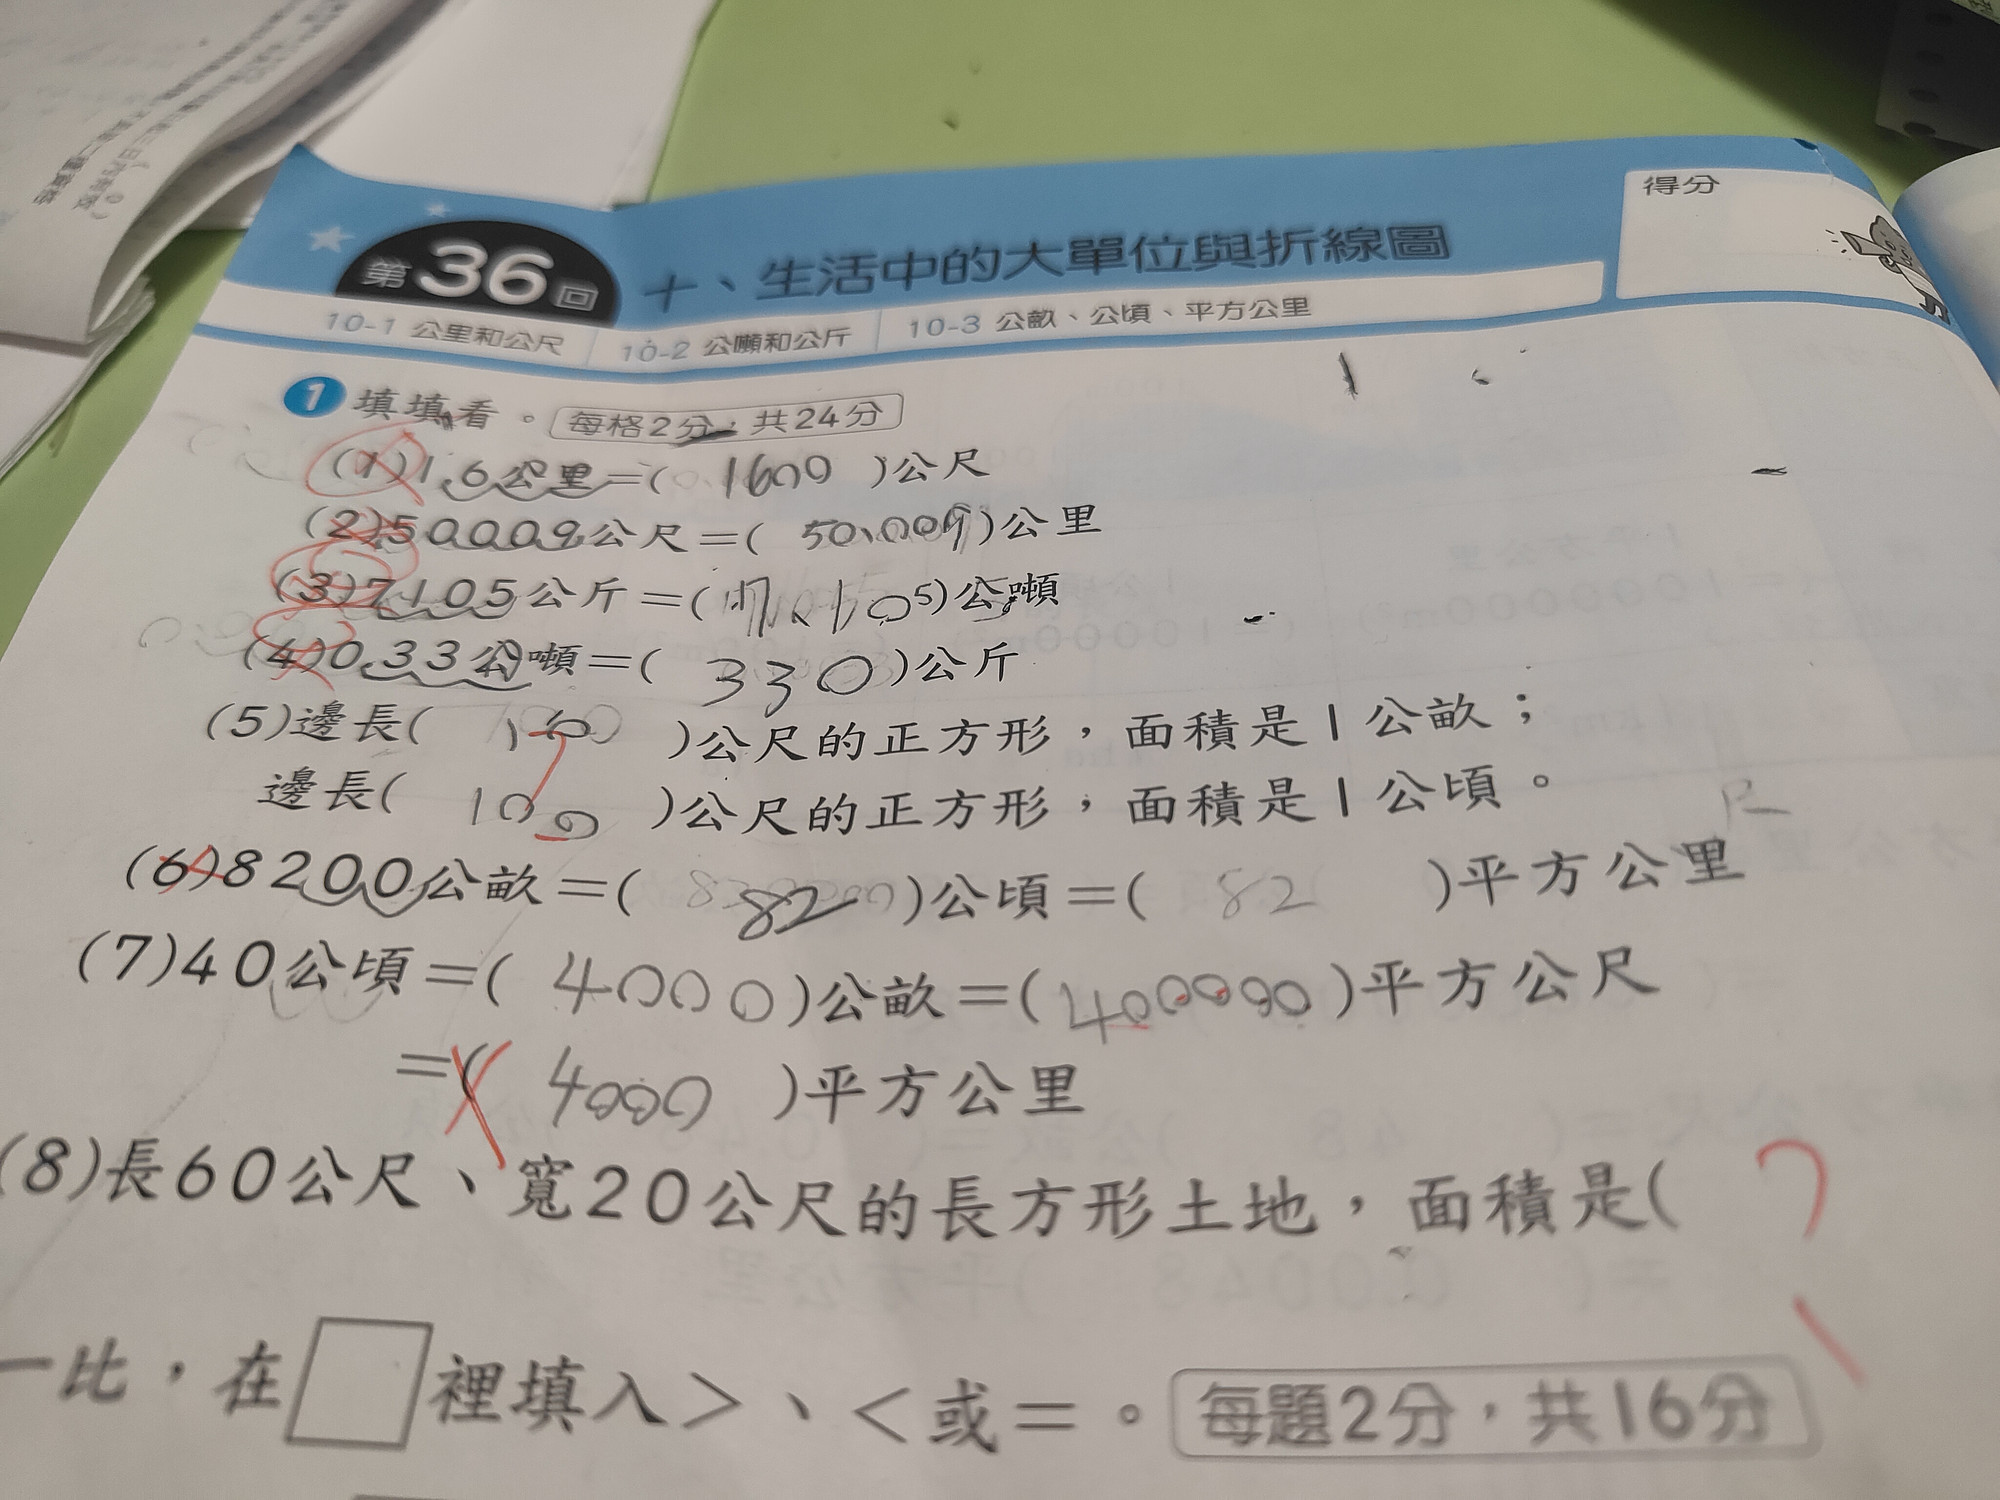 第36回 十、生活中的大單位與折線圖
得分
10-1 公里和公尺 10-2 公噸和公斤 10-3 公畝、公頃、平方公里
1 填填看。每格2分，共24分
(1)1.6公里=( 1600 )公尺
(2)50009公尺=( 50.009 )公里
(3)7105公斤=( 7.105 )公噸
(4)0.33公噸=( 330 )公斤
(5)邊長( 10 )公尺的正方形，面積是1公畝；
邊長( 100 )公尺的正方形，面積是1公頃。
(6)8200公畝=( 82 )公頃=( 82 )平方公里
(7)40公頃=( 4000 )公畝=( 400000 )平方公尺
=( 4000 )平方公里
(8)長60公尺、寬20公尺的長方形土地，面積是(
一比，在□裡填入>、<或=。每題2分，共16分